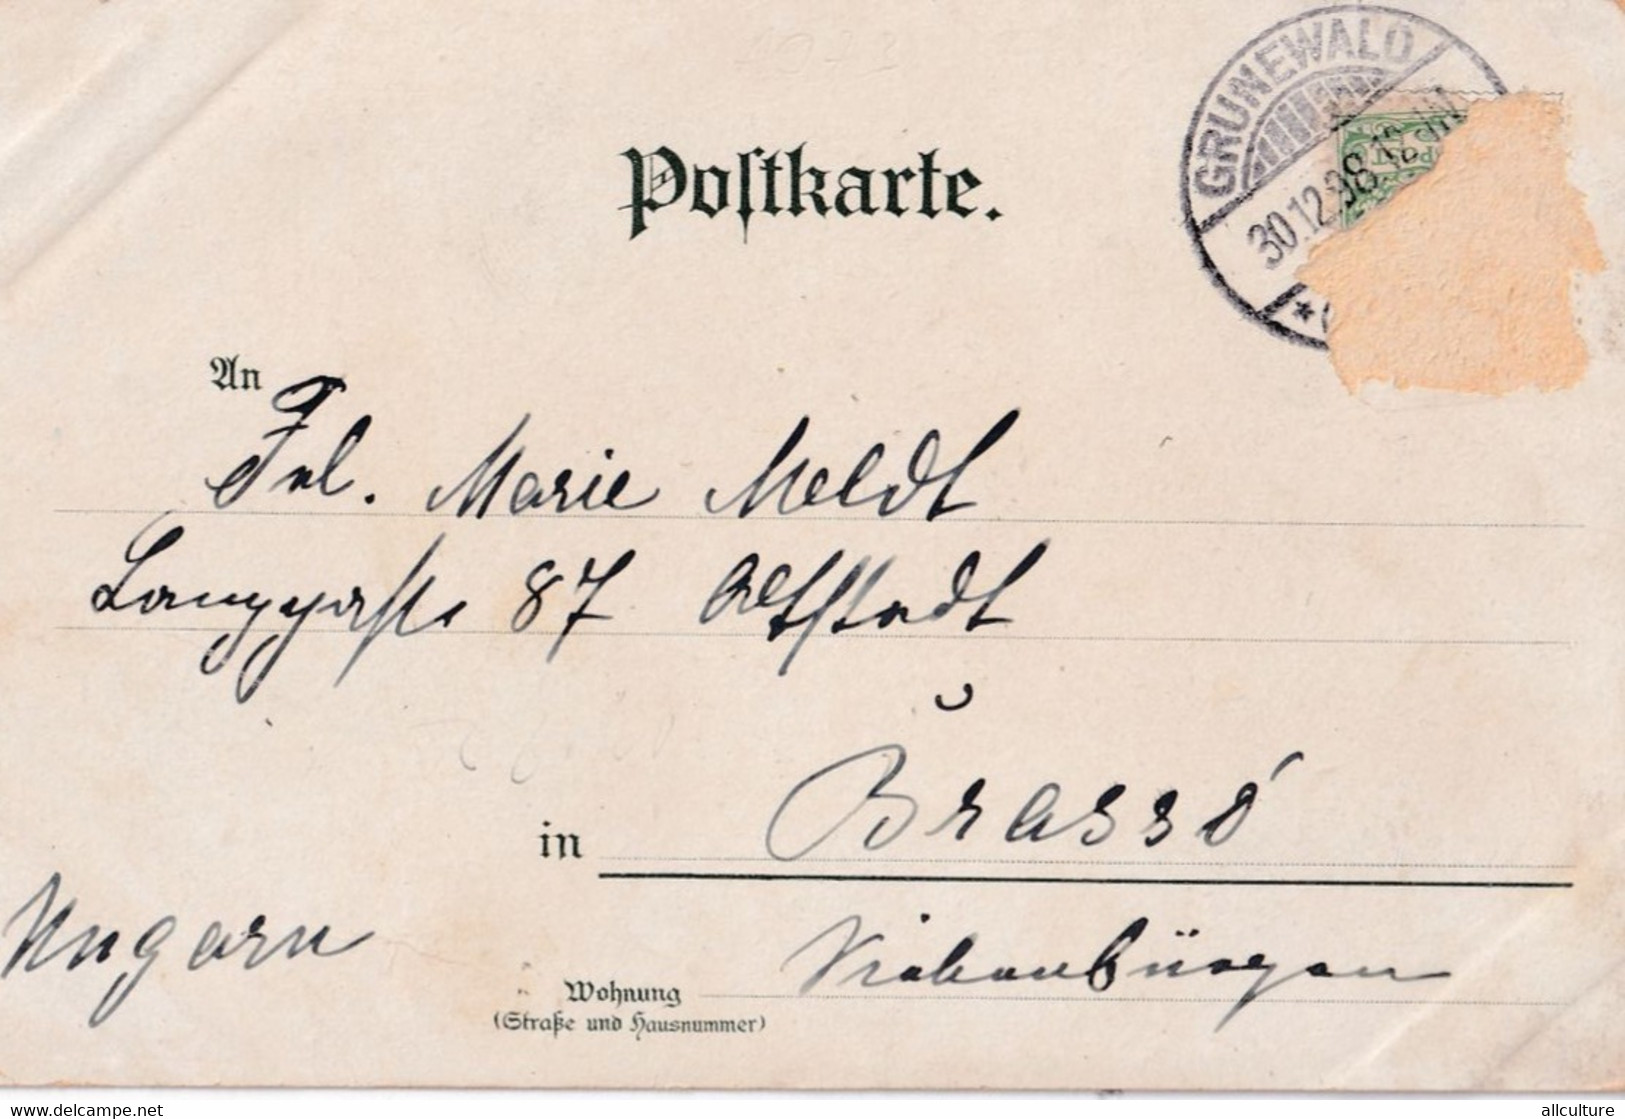 Postkarte.
GRUNEWALD
30.12.98.12
An
Frl. Marie Meldt
Langgasse 87 Altstadt
in Brassó
Ungarn
Siebenbürgen
Wohnung
(Straße und Hausnummer)
www.delcampe.net
allculture